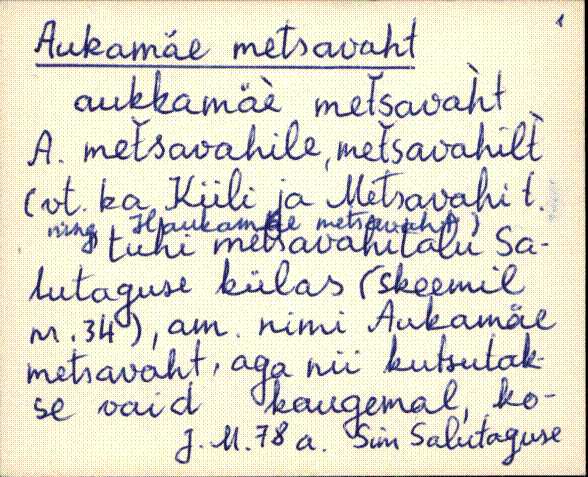 1
Aukamäe metsavaht
aukkamäè metšavàht
A. metšavahile, metšavahilt̀
(vt. ka Kiili ja Metsavahi t.
ning Haukamäe metsavaht)
tühi metsavahitalu Sa-
lutaguse külas (skeemil
nr. 34), am. nimi Aukamäe
metsavaht, aga nii kutsutak-
se vaid kaugemal, ko-
J. M. 78 a. Sim Salutaguse